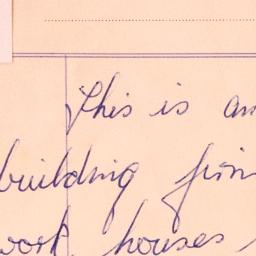 This is an
building firm
work houses